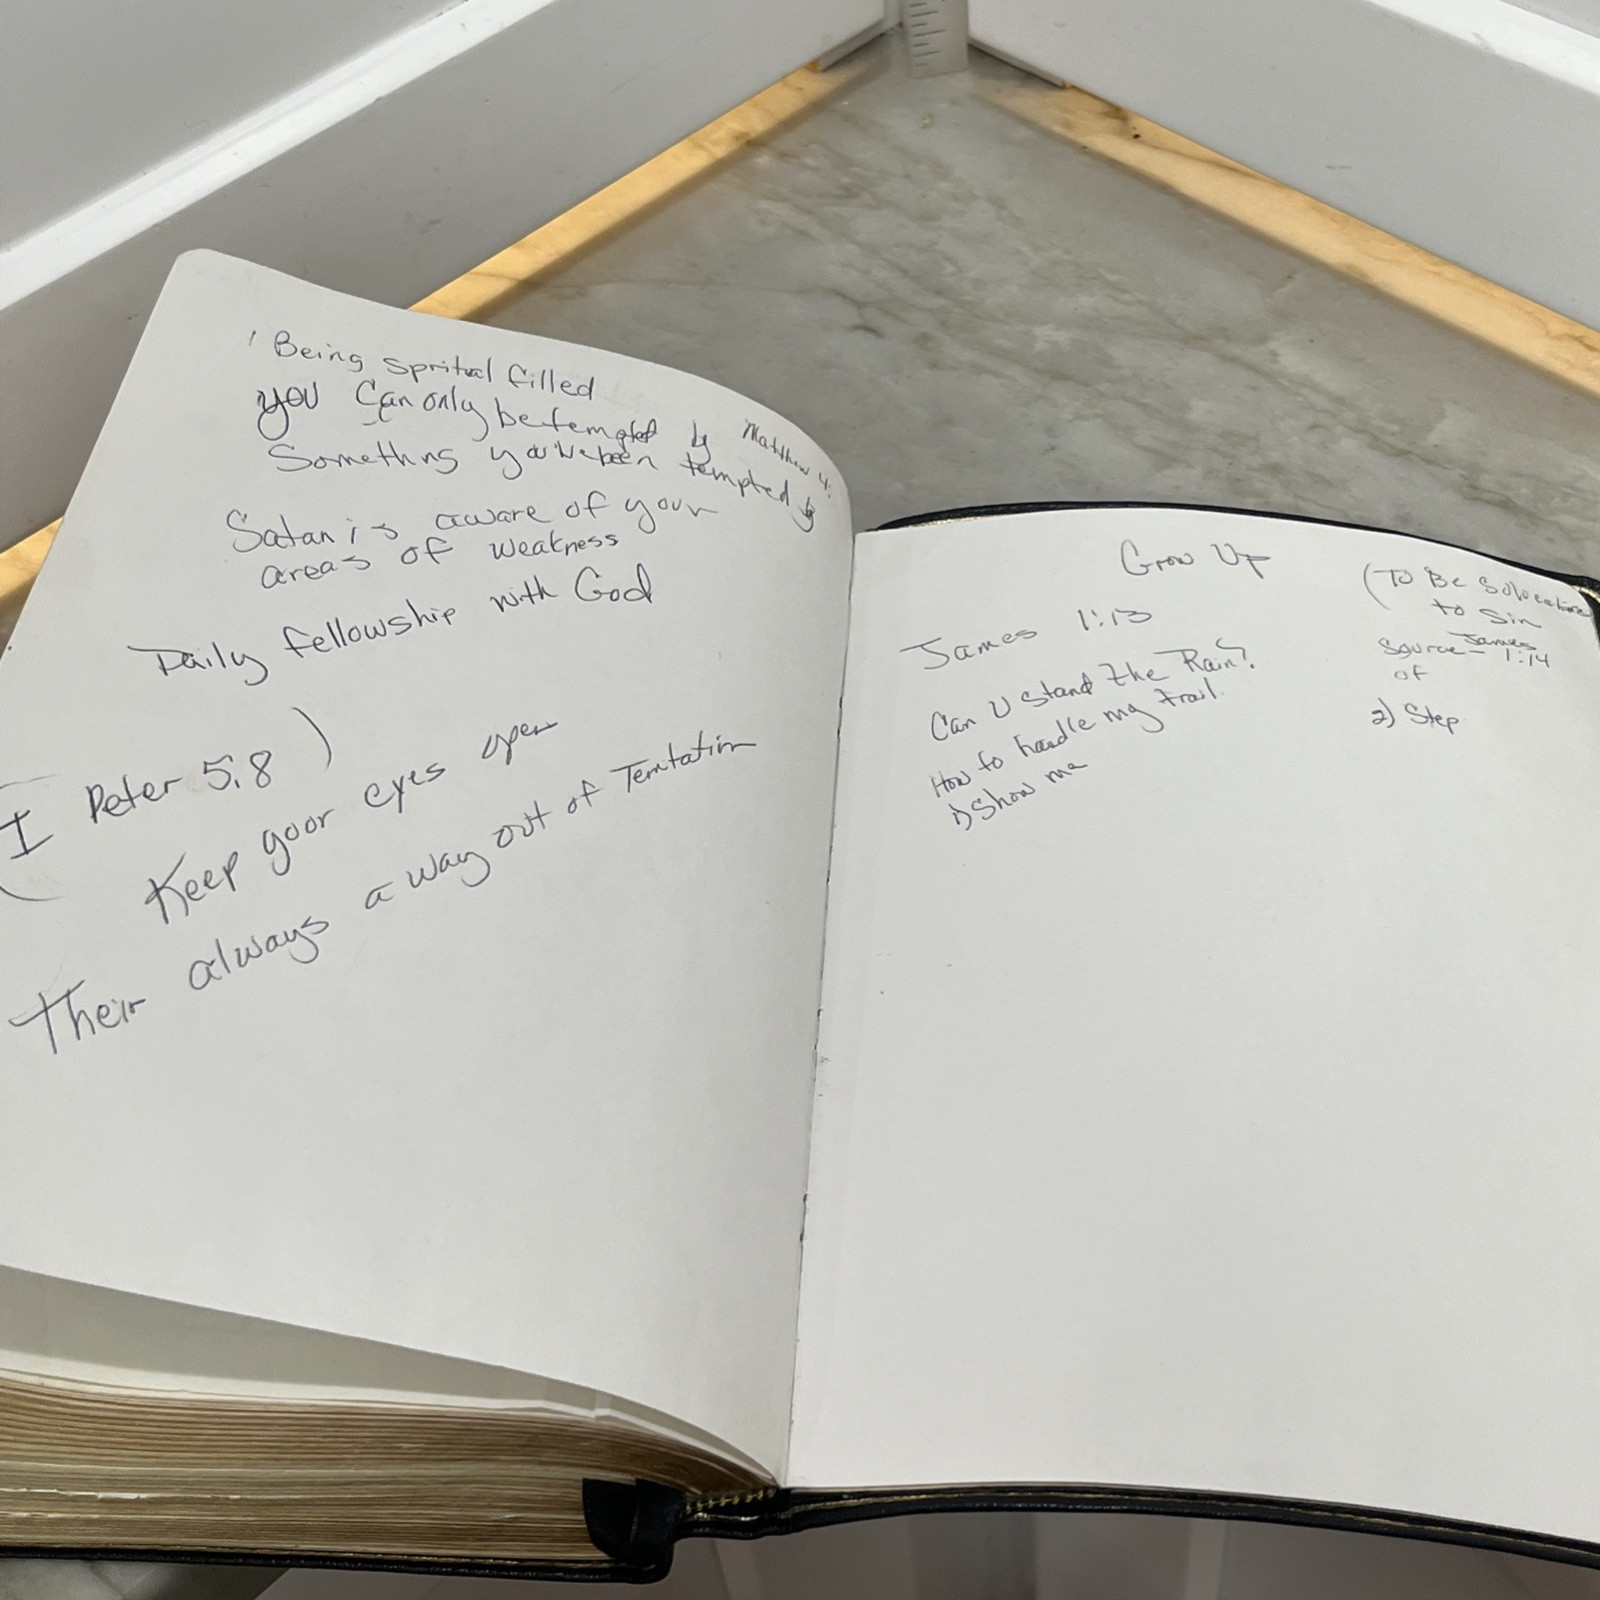 Being spritual filled
you can only be tempted by
Something you've been tempted by
Matthew 4:
Satan is aware of your
areas of weakness
Daily fellowship with God
(I Peter 5:8)
Keep your eyes open
Their always a way out of Temtation
Grow Up
James 1:13
Can U stand the Rain?
How to handle my trail.
1) Show me
(To Be
to Sin
Source - James 1:14
of
2) Step